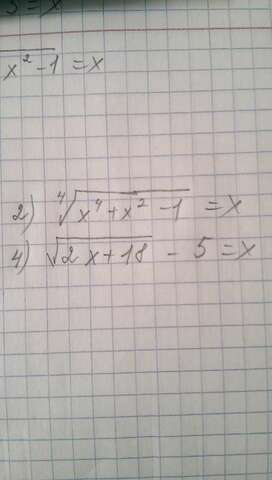 5 = x
x² - 1 = x
2) ⁴√(x⁴ + x² - 1) = x
4) √(2x + 18) - 5 = x